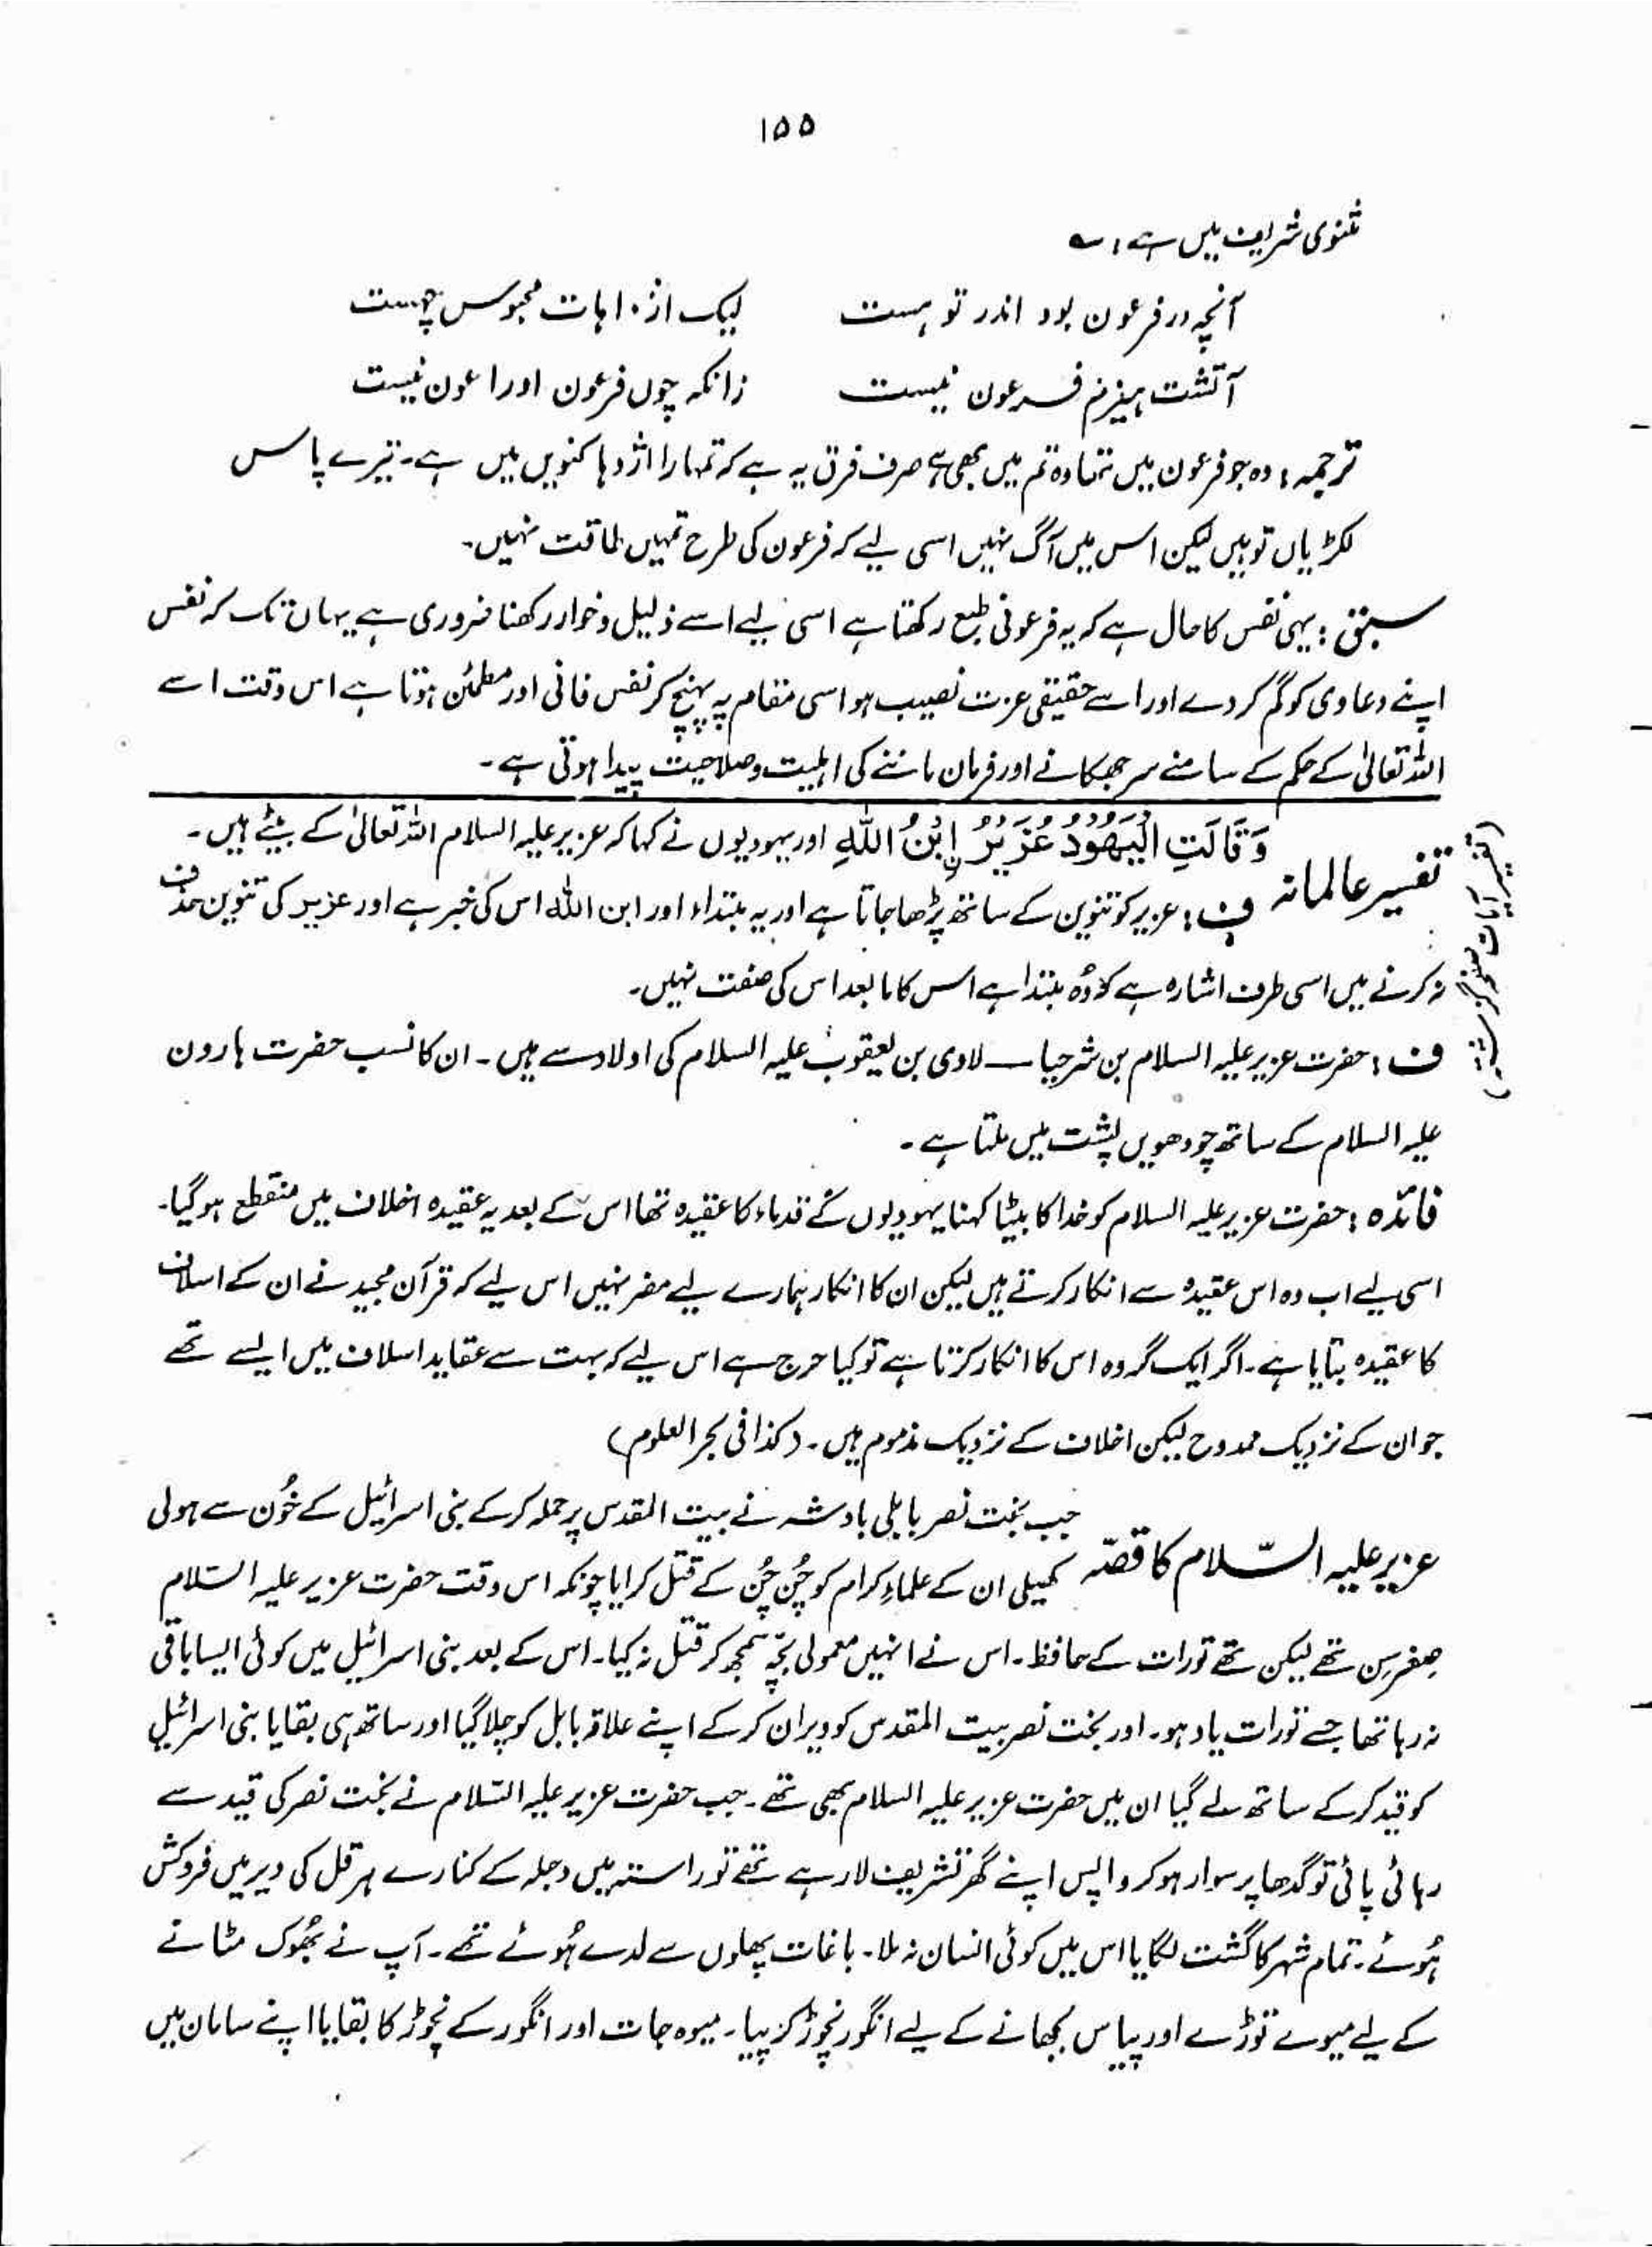 ۱۵۵
مثنوی شریف میں ہے : ؎
آنچہ در فرعون بود اندر تو ہست لیک اژدہات محبوس چہست
آتشت ہیزم فرعون نیست زانکہ چوں فرعون اورا عون نیست
ترجمہ : وہ جو فرعون میں تھا وہ تم میں بھی ہے صرف فرق یہ ہے کہ تمہارا اژدہا کنویں میں ہے۔ تیرے پاس
لکڑیاں تو ہیں لیکن اس میں آگ نہیں اسی لیے کہ فرعون کی طرح تمہیں طاقت نہیں۔
سبق : یہی نفس کا حال ہے کہ یہ فرعونی طبع رکھتا ہے اسی لیے اسے ذلیل و خوار رکھنا ضروری ہے یہاں تک کہ نفس
اپنے دعاوی کو گم کر دے اور اسے حقیقی عزت نصیب ہو اسی مقام پہ پہنچ کر نفس فانی اور مطمئن ہوتا ہے اس وقت اسے
اللہ تعالیٰ کے حکم کے سامنے سر جھکانے اور فرمان ماننے کی اہلیت و صلاحیت پیدا ہوتی ہے۔
(تفسیر آیات صفحہ گزشتہ)
تفسیر عالمانہ وَقَالَتِ الْیَهُوْدُ عُزَیْرُ نِ ابْنُ اللّٰهِ اور یہودیوں نے کہا کہ عزیر علیہ السلام اللہ تعالیٰ کے بیٹے ہیں۔
ف : عزیر کو تنوین کے ساتھ پڑھا جاتا ہے اور یہ مبتداء اور ابن اللہ اس کی خبر ہے اور عزیر کی تنوین حذف
نہ کرنے میں اسی طرف اشارہ ہے کہ وُہ مبتدا ہے اس کا مابعد اس کی صفت نہیں۔
ف : حضرت عزیر علیہ السلام بن شرحیا ــ لاوی بن یعقوب علیہ السلام کی اولاد سے ہیں۔ ان کا نسب حضرت ہارون
علیہ السلام کے ساتھ چودھویں پشت میں ملتا ہے۔
فائدہ : حضرت عزیر علیہ السلام کو خدا کا بیٹا کہنا یہودیوں کے قدماء کا عقیدہ تھا اس کے بعد یہ عقیدہ اخلاف میں منقطع ہو گیا۔
اسی لیے اب وہ اس عقیدہ سے انکار کرتے ہیں لیکن ان کا انکار ہمارے لیے مضر نہیں اس لیے کہ قرآن مجید نے ان کے اسلاف
کا عقیدہ بتایا ہے۔ اگر ایک گروہ اس کا انکار کرتا ہے تو کیا حرج ہے اس لیے کہ بہت سے عقاید اسلاف میں ایسے تھے
جو ان کے نزدیک ممدوح لیکن اخلاف کے نزدیک مذموم ہیں۔ (کذا فی بحر العلوم)
عزیر علیہ السّلام کا قصّہ جب بخت نصر بابلی بادشہ نے بیت المقدس پر حملہ کرکے بنی اسرائیل کے خُون سے ہولی
کھیلی ان کے علماءِ کرام کو چُن چُن کے قتل کرایا چونکہ اس وقت حضرت عزیر علیہ السّلام
صِغرسِن تھے لیکن تھے تورات کے حافظ۔ اس نے انہیں معمولی بچّہ سمجھ کر قتل نہ کیا۔ اس کے بعد بنی اسرائیل میں کوئی ایسا باقی
نہ رہا تھا جسے تورات یاد ہو۔ اور بخت نصر بیت المقدس کو ویران کر کے اپنے علاقہ بابل کو چلا گیا اور ساتھ ہی بقایا بنی اسرائیل
کو قید کر کے ساتھ لے گیا ان میں حضرت عزیر علیہ السلام بھی تھے۔ جب حضرت عزیر علیہ السّلام نے بخت نصر کی قید سے
رہائی پائی تو گدھا پر سوار ہو کر واپس اپنے گھر تشریف لا رہے تھے تو راستہ میں دجلہ کے کنارے ہرقل کی دیر میں فروکش
ہُوئے۔ تمام شہر کا گشت لگایا اس میں کوئی انسان نہ ملا۔ باغات پھلوں سے لدے ہُوئے تھے۔ آپ نے بُھوک مٹانے
کے لیے میوے توڑے اور پیاس بجھانے کے لیے انگور نچوڑ کر پیا۔ میوہ جات اور انگور کے نچوڑ کا بقایا اپنے سامان میں